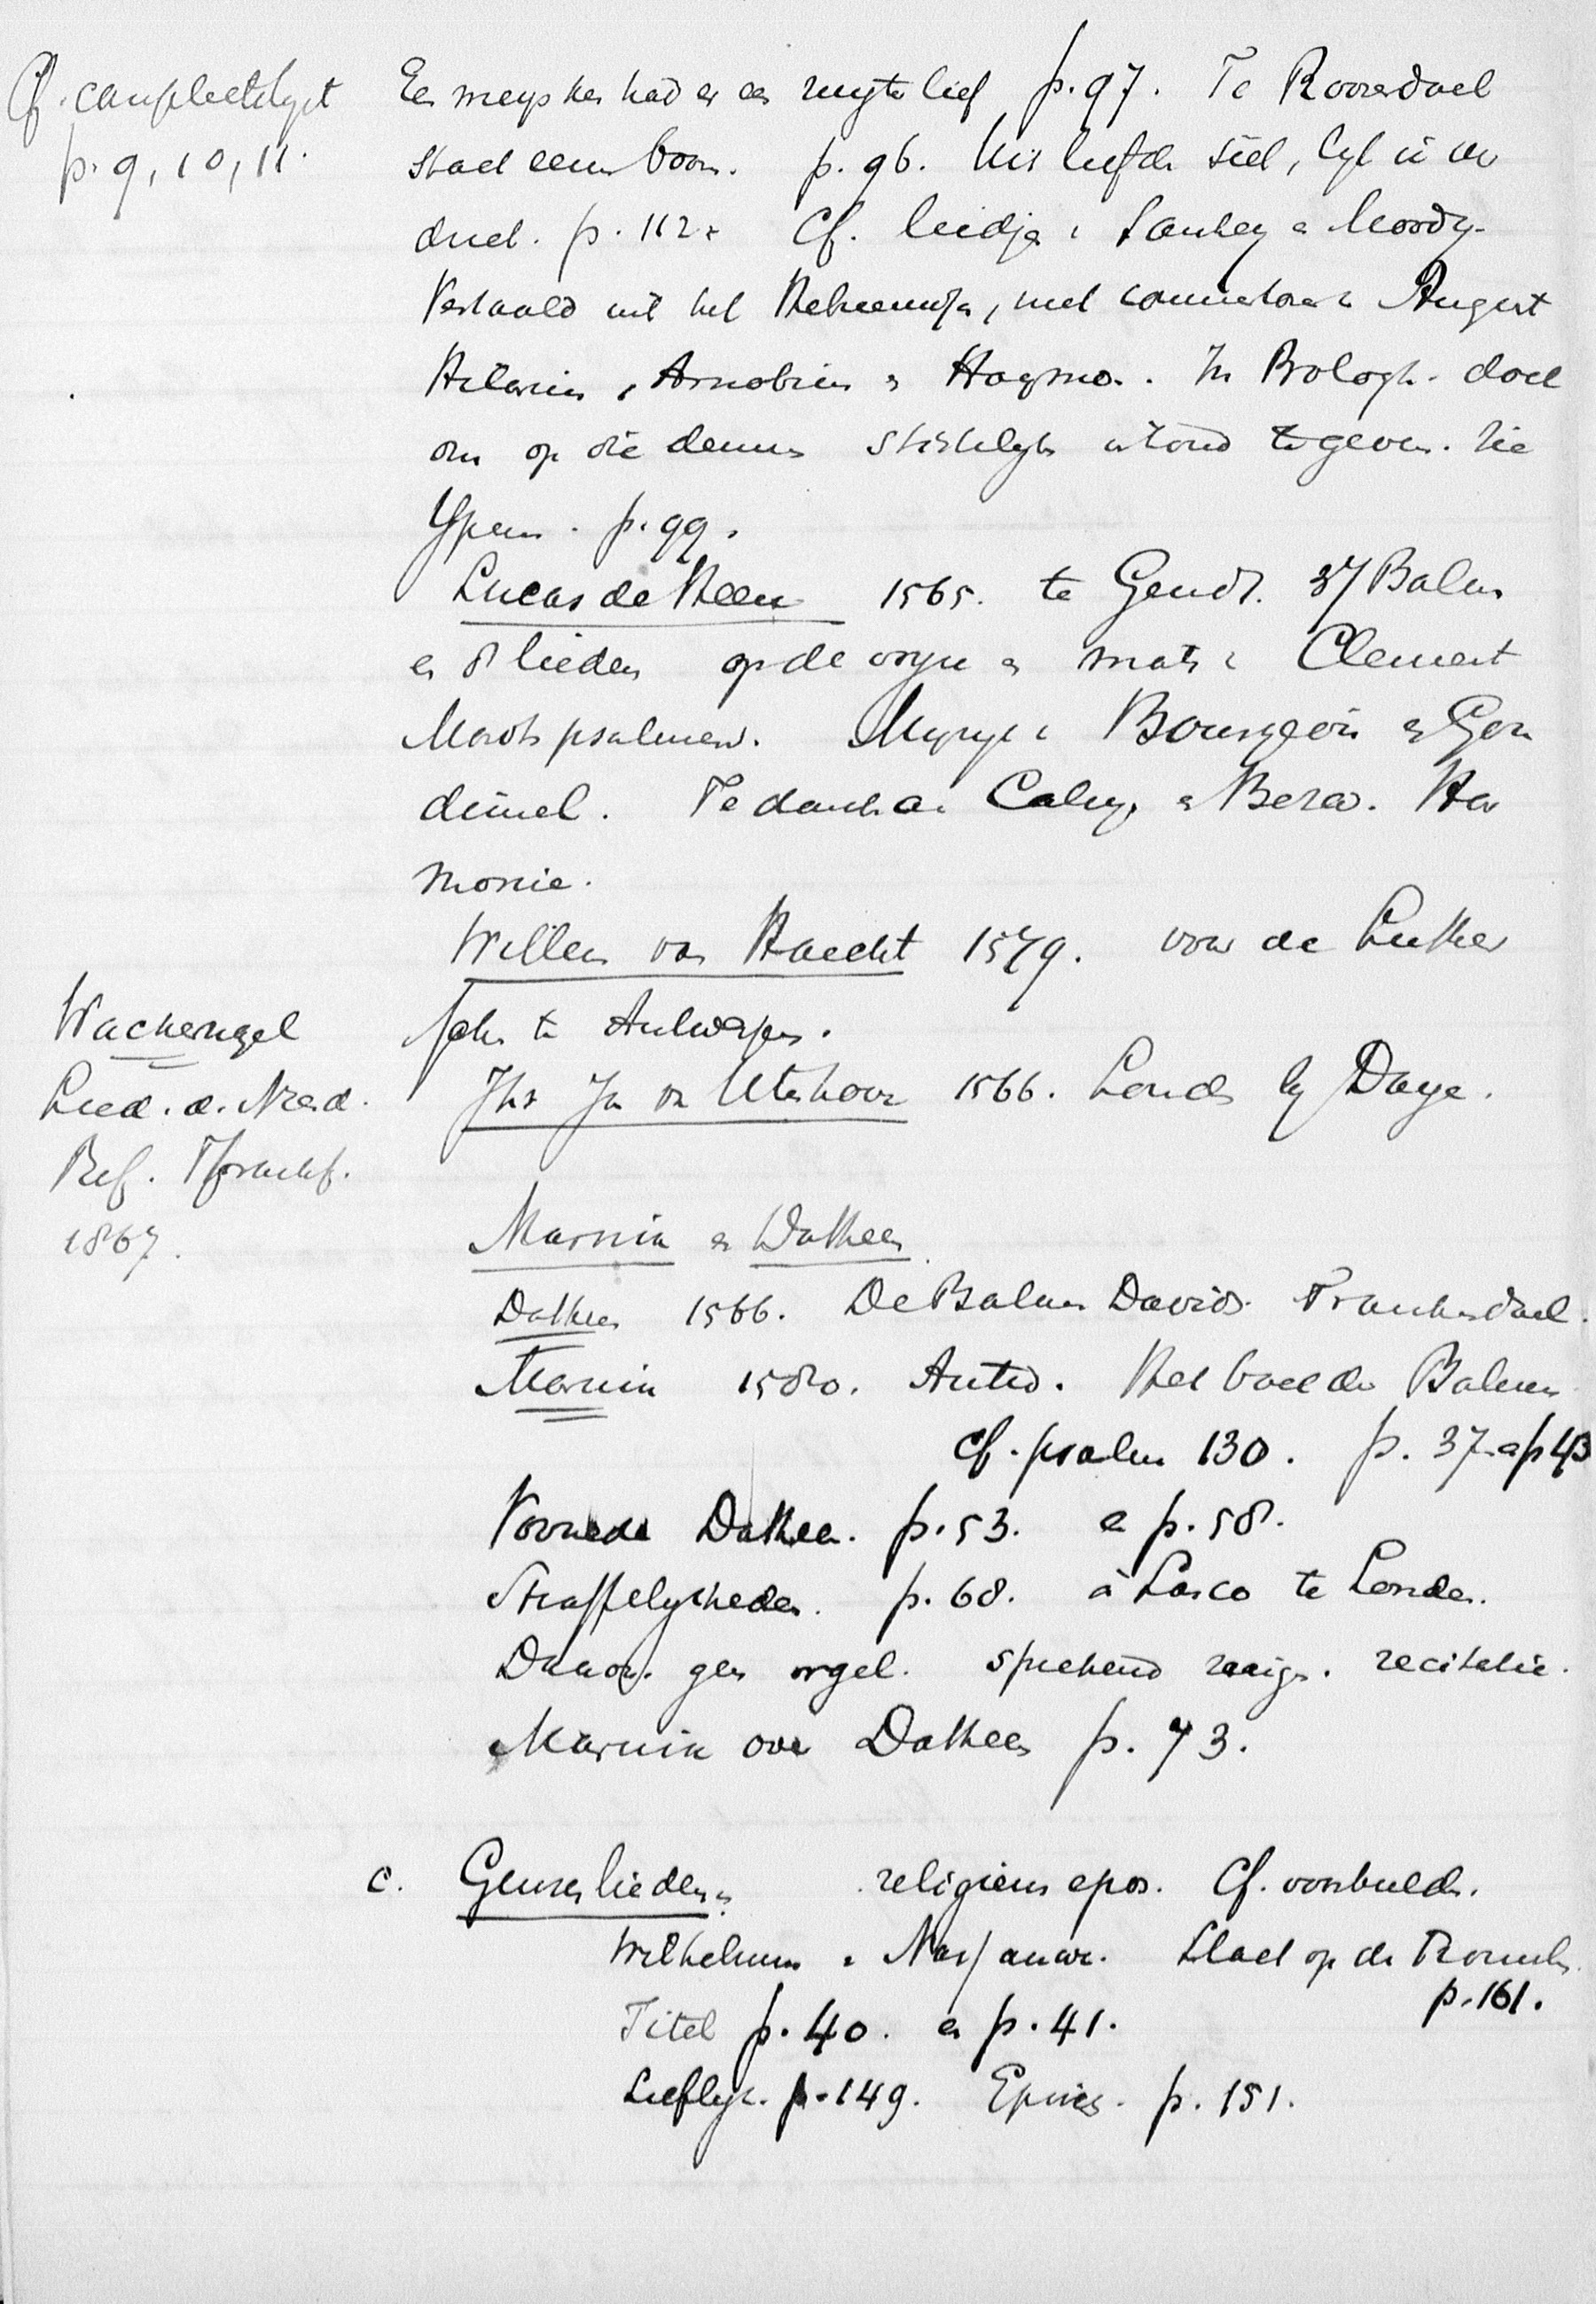 Cf. compleetelyst
p. 9, 10, 11.
Een meysken had er een ruyte lief p. 97. Te Roosendael
staet eenen boom. p. 96. lyt in den
druck. p. 112. Cf. liedjes v. Sankey en Moody.
Vertaald uit het Hebreeuwsch, met commentaar v. August
Hilarius, Arnobius en Haymo. In Prologh. doel
om op die deunen stichtelyk inhoud te geven. Zie
Yperen. p. 99.
Lucas de Heere 1565. te Gendt. 37 Psalmen
en 8 lieden op de wyse en mate v. Clement
Marots psalmen. Muzyk v. Bourgeois en Gou
dimel. Te danken aan Calvyn en Beza. Har
monie.
Willem van Haecht 1579. voor de Luther
schen te Antwerpen.
Wackernagel
Lied. d. Niederl.
Ref. Frankf.
1867.
Jhr Jan van Utenhove 1566. Londen by Daye.
Marnix en Datheen
Datheen 1566. De Psalmen Davids. Frankendael.
Marnix 1580. Antw. Het boeck der Psalmen
cf. psalm 130. p. 37 en p 43
Voorrede Datheen. p. 53. en p. 58.
p. 68. à Lasco te Londen.
geen orgel. sprekend zangen. recitatie.
Marnix over Datheen p. 73.
c. Geuzenliederen religieus epos. Cf. voorbeelden.
Wilhelmus v. Nassauwe. Slaet op den Trommele
p. 161.
Titel p. 40. en p. 41.
Lieflyk. p. 149. Episch. p. 151.